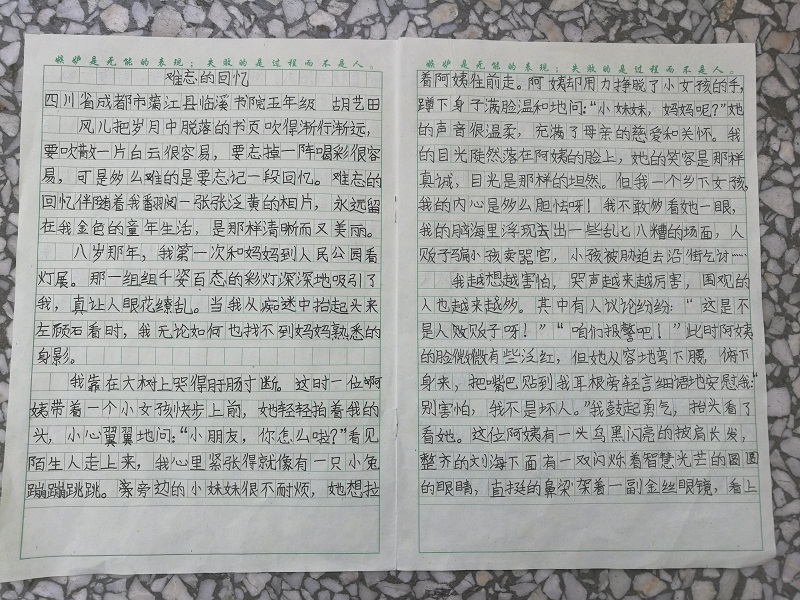 嫉妒是无能的表现；失败的是过程而不是人。
难忘的回忆
四川省成都市蒲江县临溪书院五年级 胡艺田
风儿把岁月中脱落的书页吹得渐行渐远，
要吹散一片白云很容易，要忘掉一阵喝彩很容
易，可是多么难的是要忘记一段回忆。难忘的
回忆伴随着我翻阅一张张泛黄的相片，永远留
在我金色的童年生活，是那样清晰而又美丽。
八岁那年，我第一次和妈妈到人民公园看
灯展。那一组组千姿百态的彩灯深深地吸引了
我，真让人眼花缭乱。当我从痴迷中抬起头来
左顾右看时，我无论如何也找不到妈妈熟悉的
身影。
我靠在大树上哭得肝肠寸断。这时一位啊
姨带着一个小女孩快步上前，她轻轻拍着我的
头，小心翼翼地问：“小朋友，你怎么啦？”看见
陌生人走上来，我心里紧张得就像有一只小兔
蹦蹦跳跳。旁边的小妹妹很不耐烦，她想拉
嫉妒是无能的表现；失败的是过程而不是人。
着阿姨往前走。阿姨却用力挣脱了小女孩的手，
蹲下身子满脸温和地问：“小妹妹，妈妈呢？”她
的声音很温柔，充满了母亲的慈爱和关怀。我
的目光陡然落在阿姨的脸上，她的笑容是那样
真诚，目光是那样的坦然。但我一个乡下女孩，
我的内心是多么胆怯呀！我不敢多看她一眼，
我的脑海里浮现出一些乱七八糟的场面，人
贩子骗小孩卖器官，小孩被胁迫去沿街乞讨……
我越想越害怕，哭声越来越厉害，围观的
人也越来越多。其中有人议论纷纷：“这是不
是人贩子呀！”“咱们报警吧！”此时阿姨
的脸微微有些泛红，但她从容地弯下腰，俯下
身来，把嘴巴贴到我耳根旁轻言细语地安慰我：“
别害怕，我不是坏人。”我鼓起勇气，抬头看了
看她。这位阿姨有一头乌黑闪亮的披肩长发，
整齐的刘海下面有一双闪烁着智慧光芒的圆圆
的眼睛，直挺的鼻梁架着一副金丝眼镜，看上